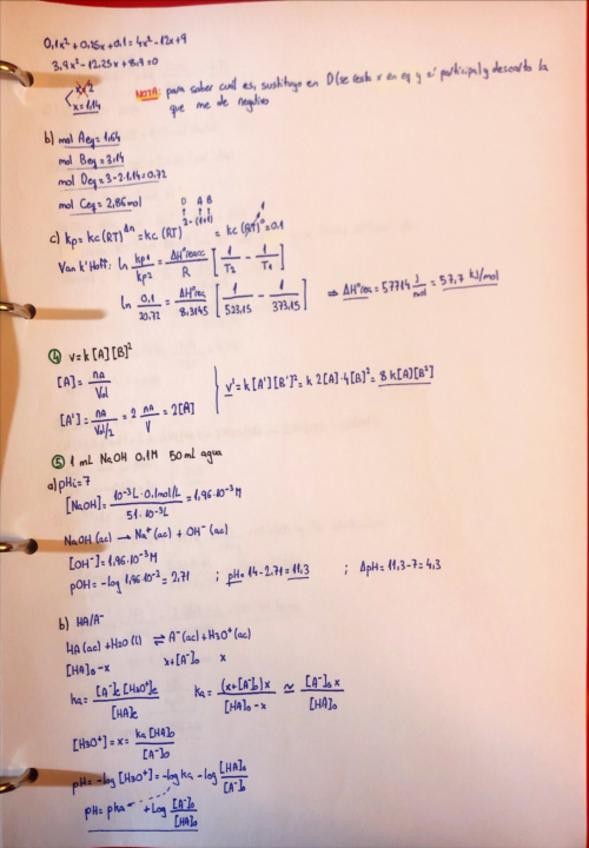 0,1x² + 0,25x + 0,1 = 4x² - 12x + 9
3,9x² - 12,25x + 8,9 = 0
x = 2
x = 1,14
NOTA: para saber cuál es, sustituyo en D (se resta x en eq y sí participa) y descarto la
que me de negativo
b) mol Aeq = 1,64
mol Beq = 3,14
mol Deq = 3 - 2·1,14 = 0,72
mol Ceq = 2,86 mol
D A B
c) kp = kc (RT)^Δn = kc (RT)^2-(1+1) = kc (RT)^0 = 0,1
1
Van k'Hoff: ln kp1/kp2 = ΔH°reacc/R [1/T2 - 1/T1]
ln 0,1/20,72 = ΔH°rec/8,3145 [1/523,15 - 1/373,15] ⇒ ΔH°rec = 57714 J/mol = 57,7 kJ/mol
④ v = k[A][B]²
[A] = nA/Vol
[A'] = nA/Vol/2 = 2 nA/V = 2[A]
v' = k[A'][B']² = k 2[A]·4[B]² = 8 k[A][B²]
⑤ 1 mL NaOH 0,1M 50 mL agua
a) pHi = 7
[NaOH] = 10⁻³L·0,1mol/L / 51·10⁻³L = 1,96·10⁻³M
NaOH (ac) → Na⁺ (ac) + OH⁻ (ac)
[OH⁻] = 1,96·10⁻³M
pOH = -log 1,96·10⁻³ = 2,71 ; pH = 14 - 2,71 = 11,3 ; ΔpH = 11,3 - 7 = 4,3
b) HA/A⁻
HA (ac) + H2O (l) ⇌ A⁻ (ac) + H3O⁺ (ac)
[HA]₀ - x x + [A⁻]₀ x
ka = [A⁻]e [H3O⁺]e / [HA]e ka = (x + [A⁻]₀)x / [HA]₀ - x ≃ [A⁻]₀ x / [HA]₀
[H3O⁺] = x = ka [HA]₀ / [A⁻]₀
pH = -log [H3O⁺] = -log ka - log [HA]₀ / [A⁻]₀
pH = pka + log [A⁻]₀ / [HA]₀